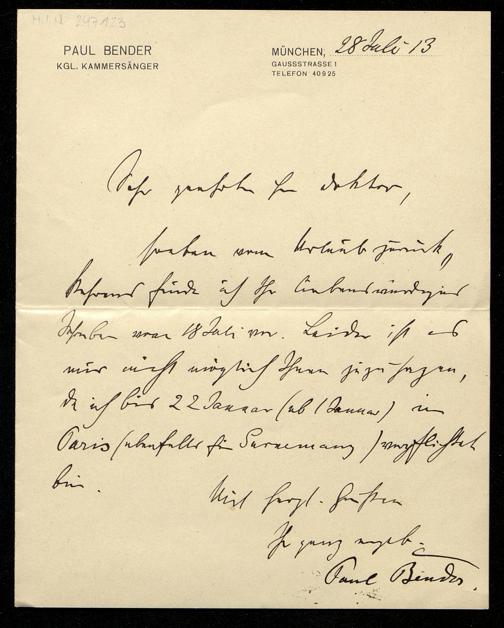 H.I.N. 247423
PAUL BENDER
KGL. KAMMERSÄNGER
MÜNCHEN, 28 Juli 13
GAUSSSTRASSE 1
TELEFON 40925
Sehr geehrter Herr Doktor,
soeben vom Urlaub zurück,
finde ich Ihr liebenswürdiges
Schreiben vom 18 Juli vor. Leider ist es
mir nicht möglich Ihnen zuzusagen,
da ich bis 22 Januar (ab 1 Januar) in
Paris (ebenfalls für ) verpflichtet
bin.
Mit herzl. Grüßen
Ihr ganz ergeb.
Paul Bender.